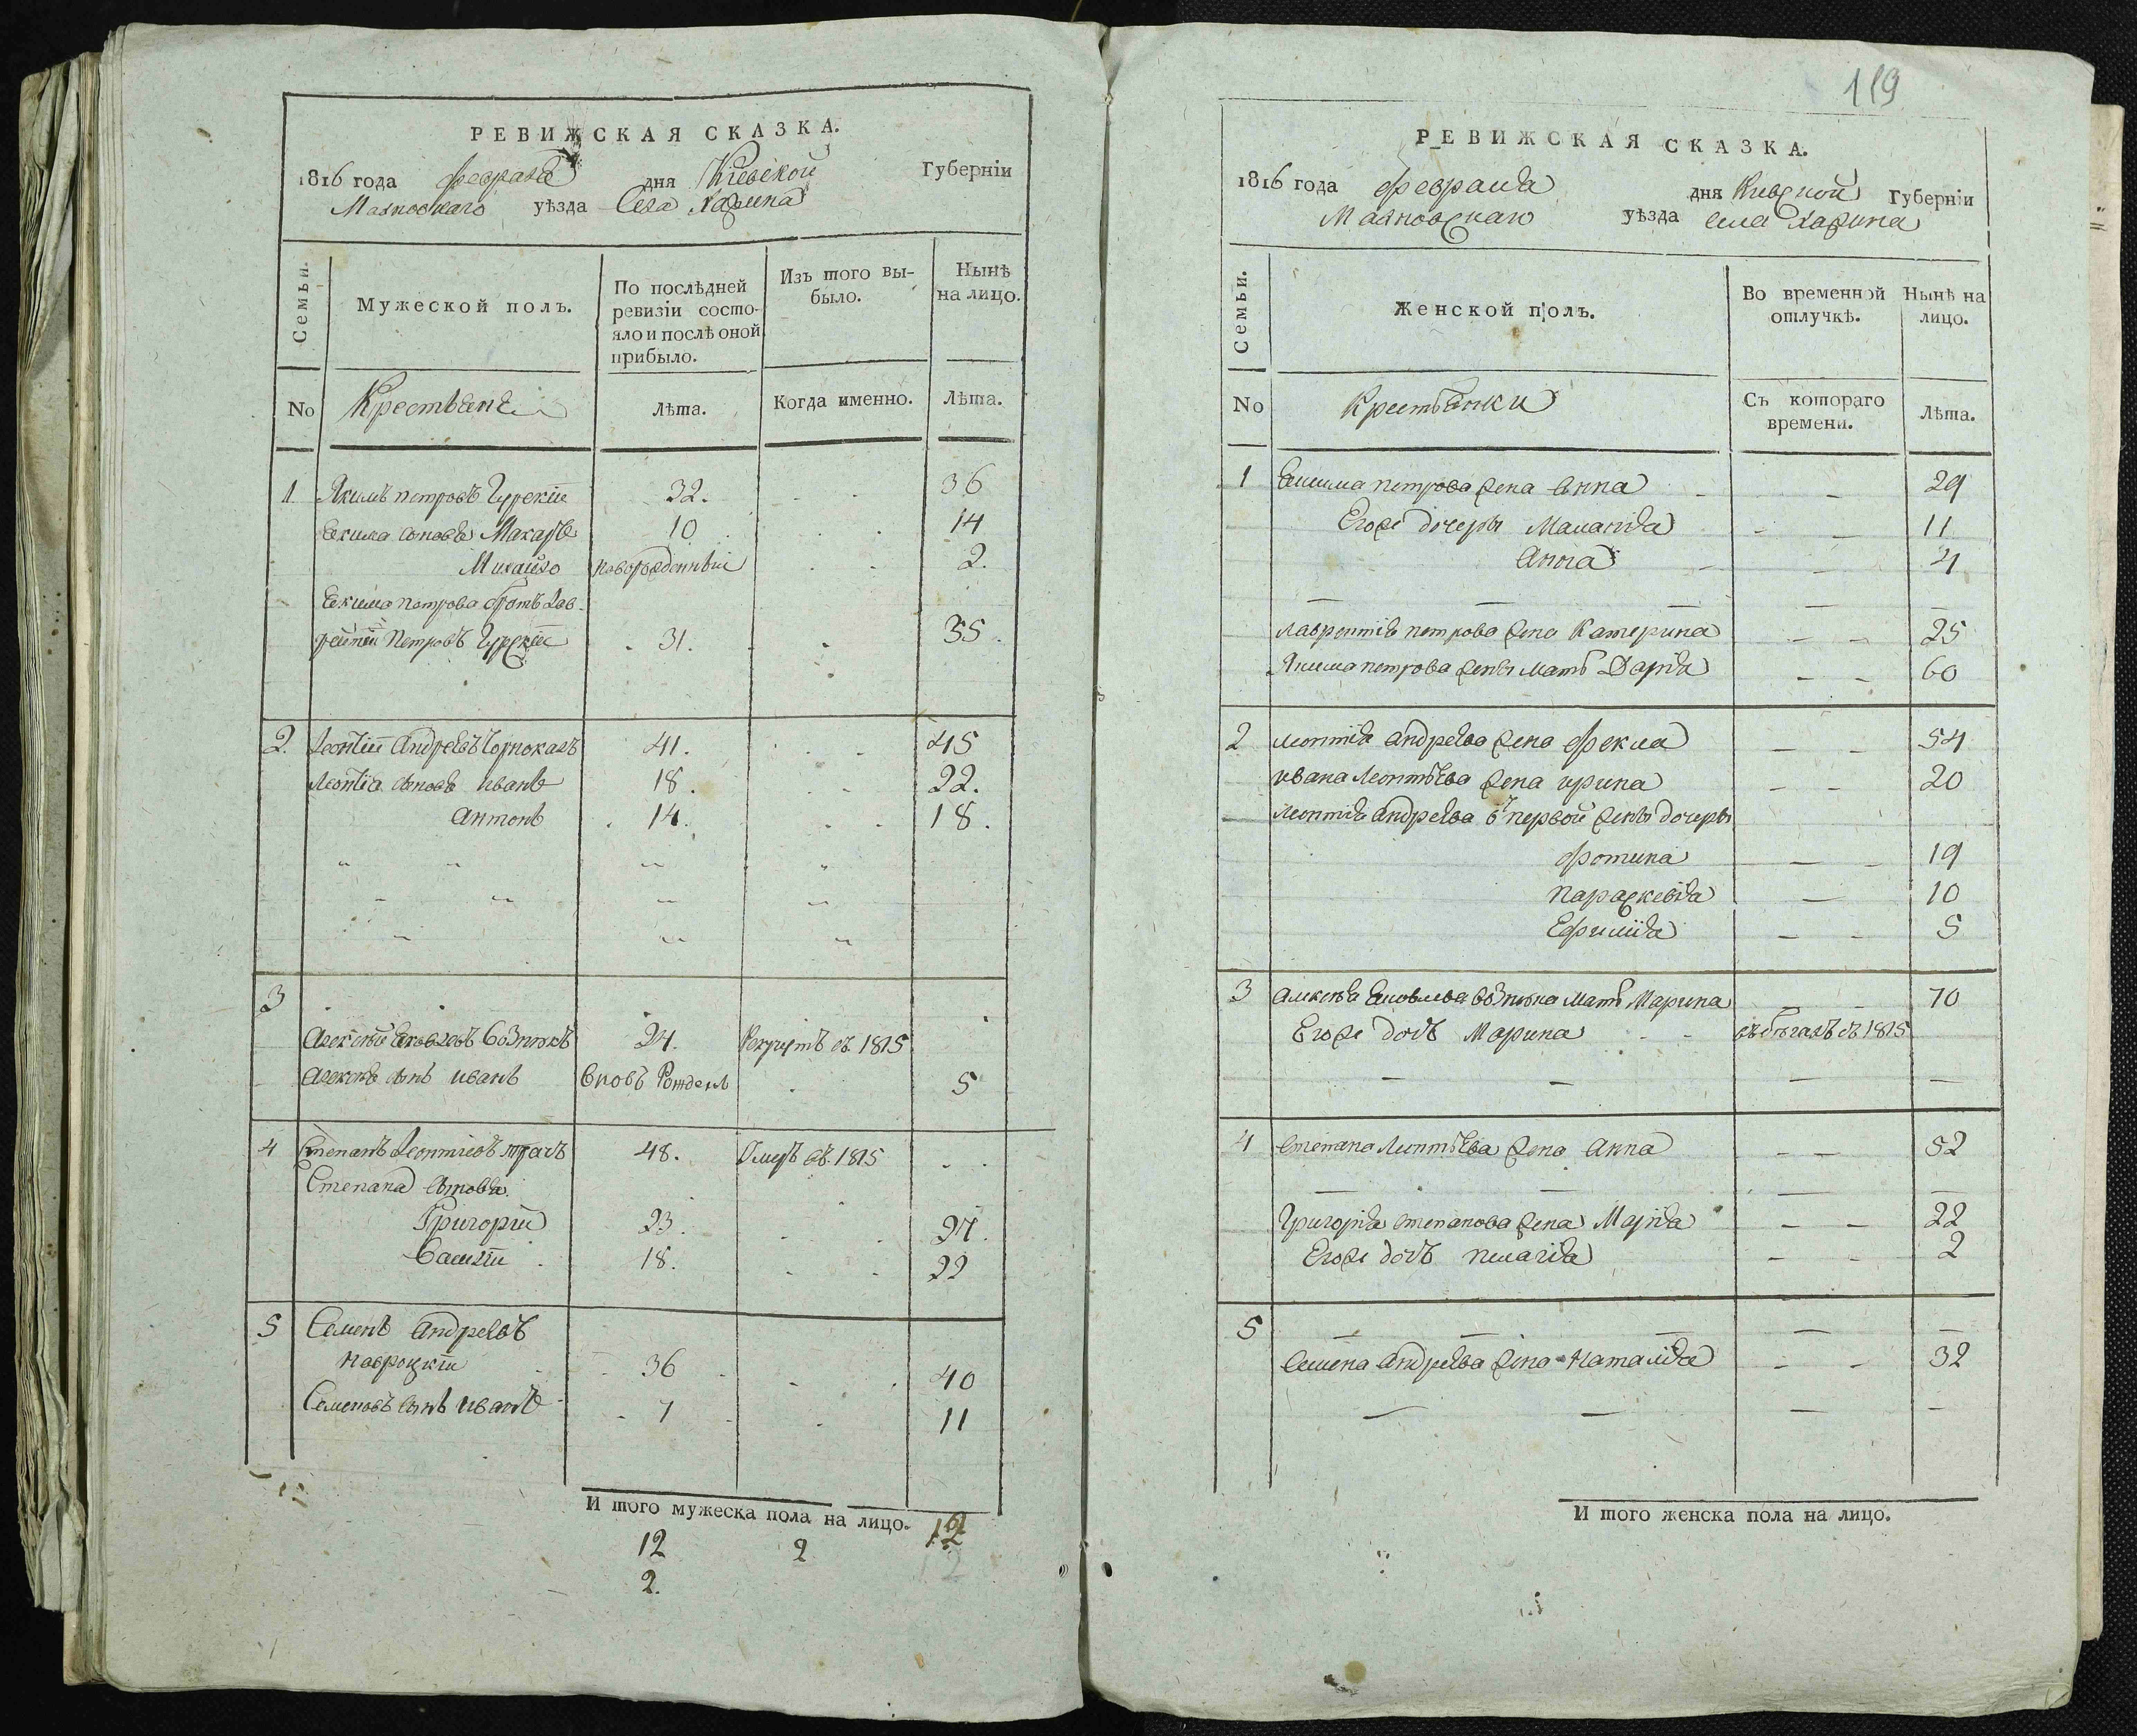 РЕВИЖСКАЯ СКАЗКА.
1816 года февраля дня Киевской Губерніи
уѣзда Села
Семьи.
Мужеской полъ.
По послѣдней
ревизіи состо-
яло и послѣ оной
прибыло.
Изъ того вы-
было.
Нынѣ
на лицо.
No
Крестьяне
Лѣта.
Когда именно.
Лѣта.
1 Якимъ петровъ 32. 36
Екима сыновья Макаръ 10 14
Михайло новорожденный 2.
Екима петрова братъ Лав-
рентій Петровъ 31. 35.
2. Леонтій Андреевъ 41. 45
Леонтія сыновья иванъ 18. 22.
антонъ 14. 18.
3
Алексѣй Яковлевъ Возникъ 24. Рекрутъ въ 1815
Алексѣя сынъ иванъ вновь Рожденъ 5
4 Степанъ Леонтіевъ ткачъ 48. Умеръ въ 1815
Степана сыновья
Григорій 23. 27.
Василій 18. 22
5 Семенъ андреевъ
Навроцкій 36 40
Семеновъ сынъ иванъ 7 11
И того мужеска пола на лицо. 12
12 2 12
2.
119
РЕВИЖСКАЯ СКАЗКА.
1816 года февраля дня Киевской Губерніи
уѣзда села
Семьи.
Женской полъ.
Во временной
отлучкѣ.
Нынѣ на
лицо.
No
Крестьянки
Съ котораго
времени.
Лѣта.
1 Екима петрова жена анна 29
Егоже дочеры Маланія 11
Анна 4
Лаврентія петрова жена Катерина 25
Якима петрова жены мать Дарія 60
2 Леонтія андреева жена фекла 54
ивана Леонтьева жена ирина 20
Леонтія андреева ѿ первой жены дочеры
фотина 19
параскевія 10
Ефимія 5
3 алексѣя Яковлева возника мать Марина 70
Егоже дочъ Марина въ бѣгахъ съ 1815
4 Степана Леонтьева жена анна 52
Григорія степанова жена Марія 22
Егоже дочъ пелагія 2
5
Семена андреева жена наталія 32
И того женска пола на лицо.